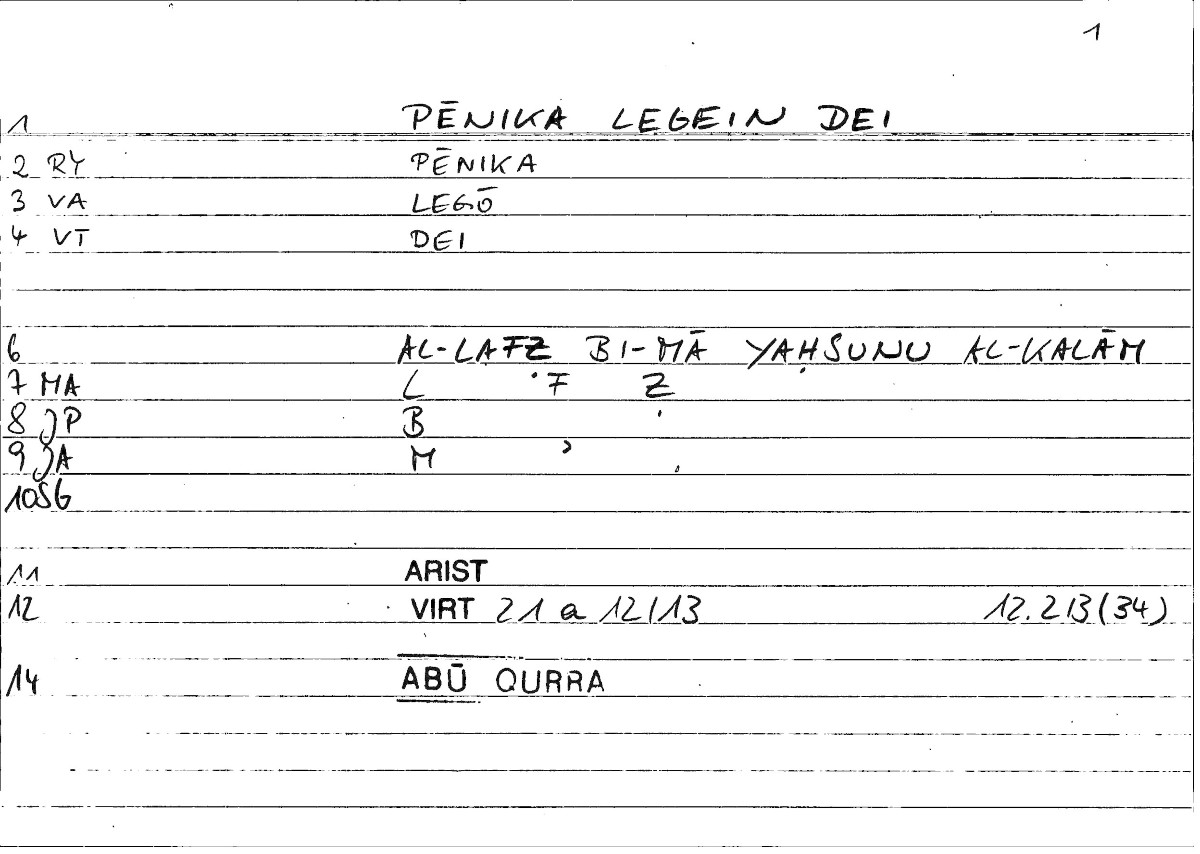 1
1 PĒNIKA LEGEIN DEI
2 RY PĒNIKA
3 VA LEGŌ
4 VT DEI
6 AL-LAFZ BI-MĀ YAḤSUNU AL-KALĀM
7 MA L F Z
8 JP B
9 JA M
10 SG
11 ARIST
12 VIRT 21 a 12/13 12.213(34)
14 ABŪ QURRA